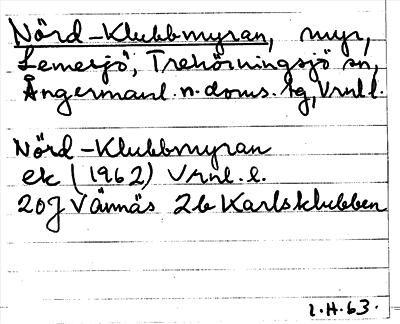 Nörd-Klubbmyran, myr,
Lemesjö, Trehörningsjö sn,
Ångermanl. n. doms. hg, Vrnl l.
Nörd-Klubbmyran
ek (1962) Vrnl. l.
20J Vännäs 2b Karlsklubben
I.H.63.